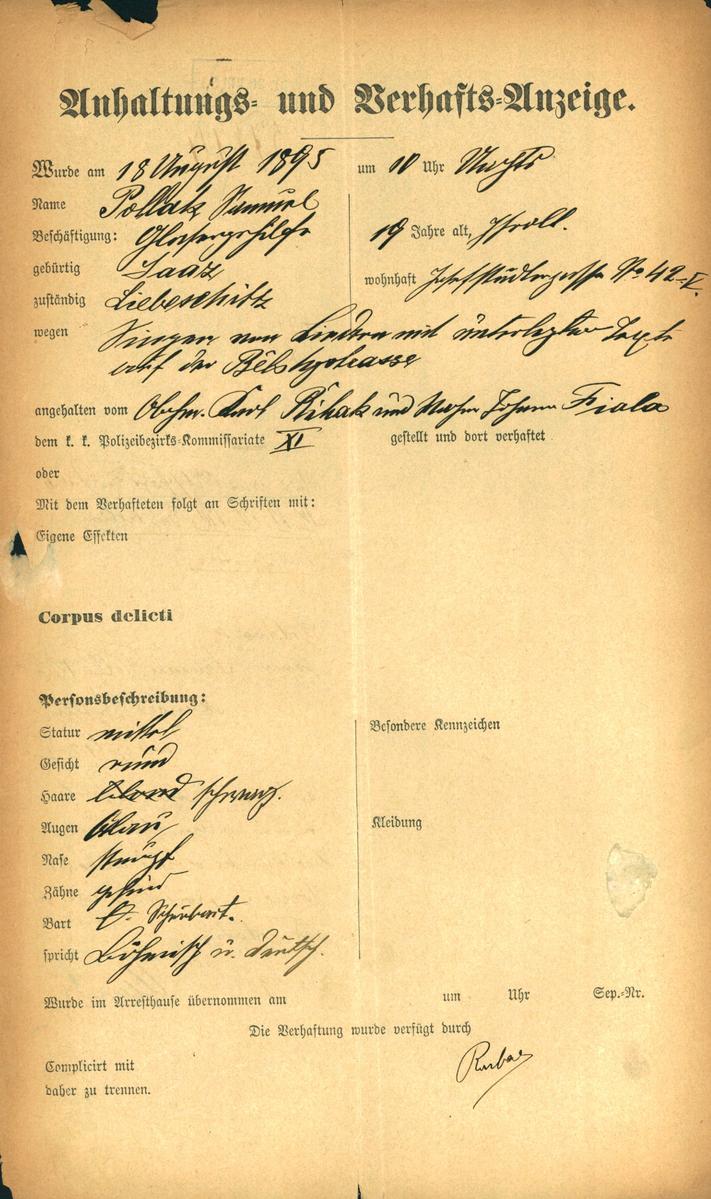 Anhaltungs- und Verhafts-Anzeige.
Wurde am 18 August 1895 um 10 Uhr Nachts
Name Pollak Samuel
Beschäftigung: Glasergehilfe 19 Jahre alt,
gebürtig Saaz wohnhaft Josefstädtergasse No 42-V.
zuständig Liebeschitz
wegen Singen von Liedern mit unterlegten Text
auf der Bělskystrasse
angehalten vom Obchm. Karl Řihak und Wchm Johann Fiala
dem k. k. Polizeibezirks-Kommissariate XI gestellt und dort verhaftet
oder
Mit dem Verhafteten folgt an Schriften mit:
Eigene Effekten
Corpus delicti
Personsbeschreibung:
Statur mittel Besondere Kennzeichen
Gesicht rund
Haare blond schwarz.
Augen blau Kleidung
Nase stumpf
Zähne gesund
Bart Schnurbart.
spricht Böhmisch u. deutsch.
Wurde im Arresthause übernommen am um Uhr Sep.-Nr.
Die Verhaftung wurde verfügt durch
Complicirt mit
daher zu trennen.